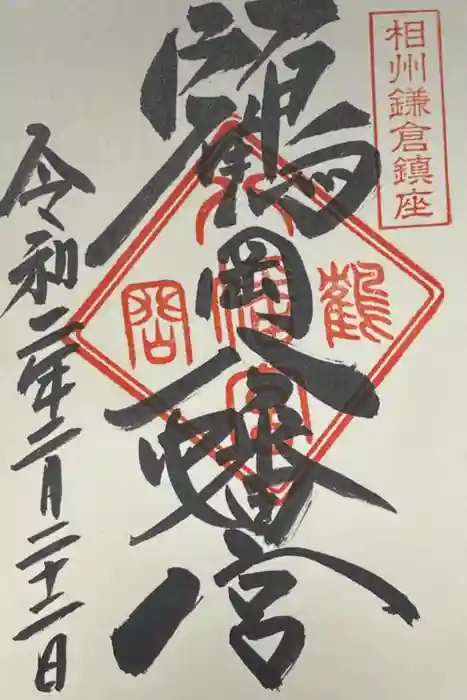 相州鎌倉鎮座
鶴岡八幡宮
鶴岡八幡宮
令和二年二月二十二日